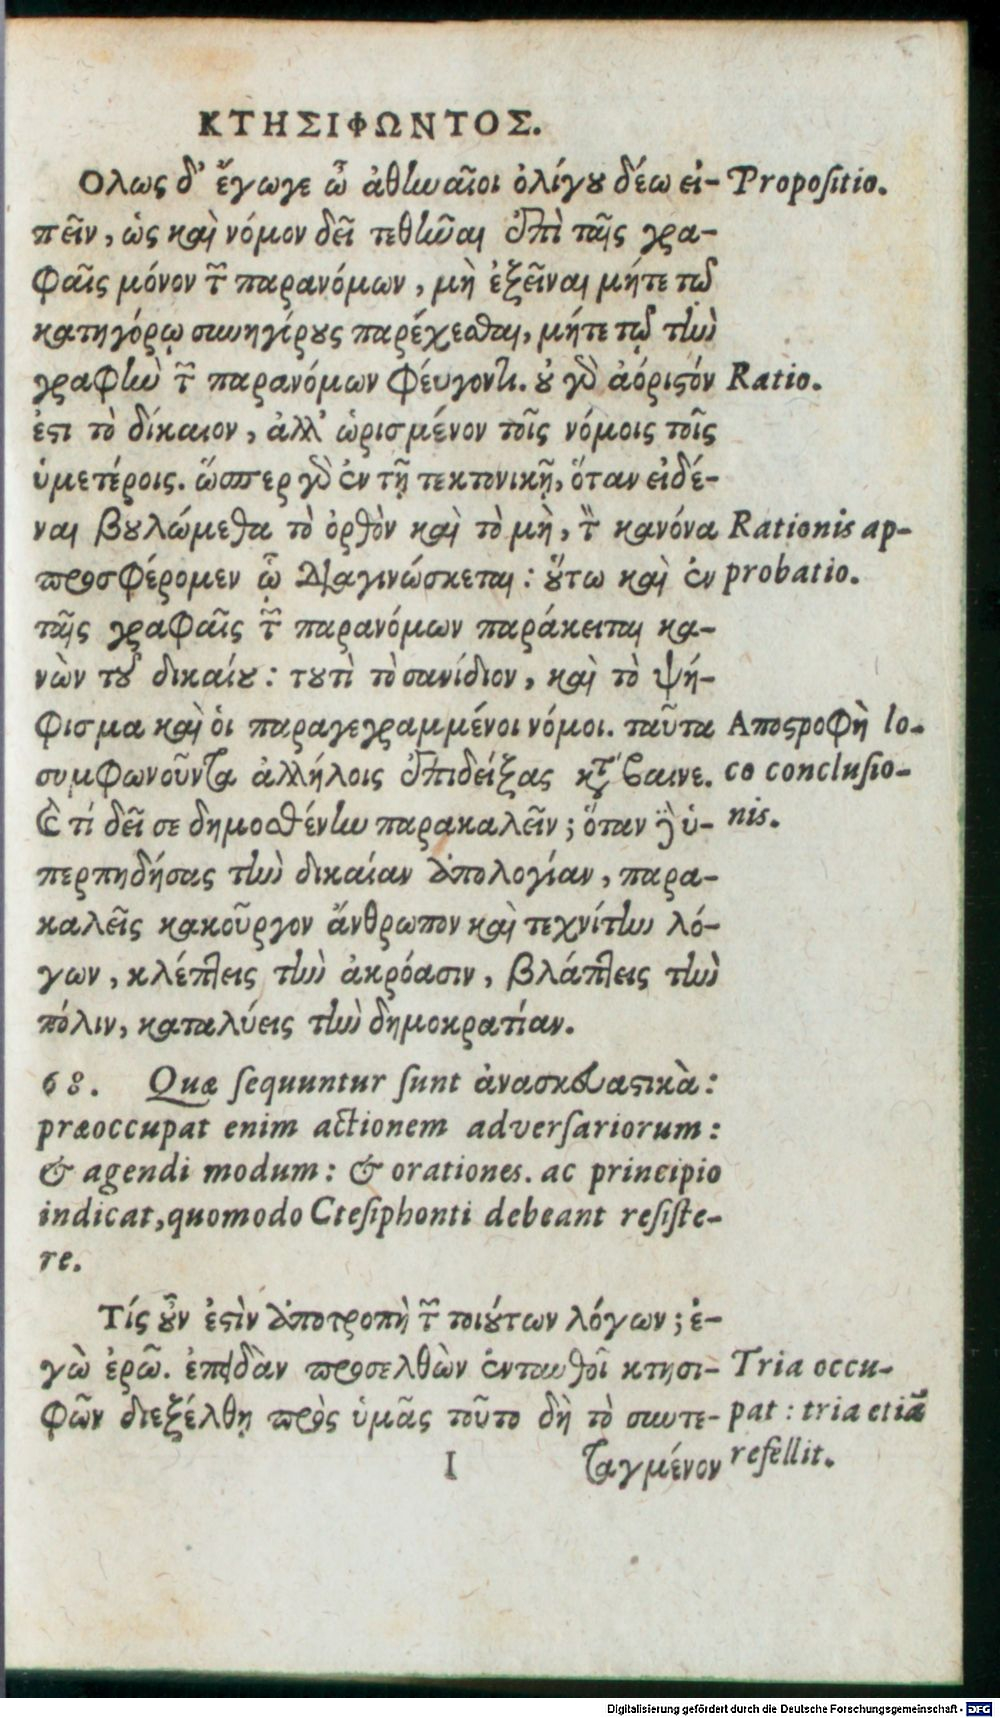 ΚΤΗΣΙΦΩΝΤΟΣ.
Ὅλως δ' ἔγωγε ὦ ἀθηναῖοι ὀλίγου δέω εἰ-
Propositio.
πεῖν, ὡς καὶ νόμον δεῖ τεθῆναι ἐπὶ ταῖς γρα-
φαῖς μόνον τῶν παρανόμων, μὴ ἐξεῖναι μήτε τῷ
κατηγόρῳ συνηγόρους παρέχεσθαι, μήτε τῷ τὴν
γραφὴν τῶν παρανόμων φεύγοντι. οὐ γὰρ ἀόριστόν
Ratio.
ἐστι τὸ δίκαιον, ἀλλ' ὡρισμένον τοῖς νόμοις τοῖς
ὑμετέροις. ὥσπερ γὰρ ἐν τῇ τεκτονικῇ, ὅταν εἰδέ-
ναι βουλώμεθα τὸ ὀρθὸν καὶ τὸ μὴ, τὸν κανόνα
Rationis ap-
προσφέρομεν ᾧ διαγινώσκεται: οὕτω καὶ ἐν
probatio.
ταῖς γραφαῖς τῶν παρανόμων παράκειται κα-
νὼν τοῦ δικαίου: τουτὶ τὸ σανίδιον, καὶ τὸ ψή-
φισμα καὶ οἱ παραγεγραμμένοι νόμοι. ταῦτα
Αποστροφὴ lo-
συμφωνοῦντα ἀλλήλοις ἐπιδείξας κατάβαινε.
co conclusio-
καὶ τί δεῖ σε δημοσθένην παρακαλεῖν; ὅταν δὲ ὑ-
nis.
περπηδήσας τὴν δικαίαν ἀπολογίαν, παρα-
καλεῖς κακοῦργον ἄνθρωπον καὶ τεχνίτην λό-
γων, κλέπτεις τὴν ἀκρόασιν, βλάπτεις τὴν
πόλιν, καταλύεις τὴν δημοκρατίαν.
68. Quæ sequuntur sunt ἀνασκευαστικὰ:
præoccupat enim actionem adversariorum:
& agendi modum: & orationes. ac principio
indicat, quomodo Ctesiphonti debeant resiste-
re.
Τίς οὖν ἐστὶν ἀποτροπὴ τῶν τοιούτων λόγων; ἐ-
γὼ ἐρῶ. ἐπειδὰν προσελθὼν ἐνταυθοῖ κτησι-
Tria occu-
φῶν διεξέλθῃ πρὸς ὑμᾶς τοῦτο δὴ τὸ συντε-
pat: tria etiã
refellit.
I
ταγμένον
Digitalisierung gefördert durch die Deutsche Forschungsgemeinschaft - DFG